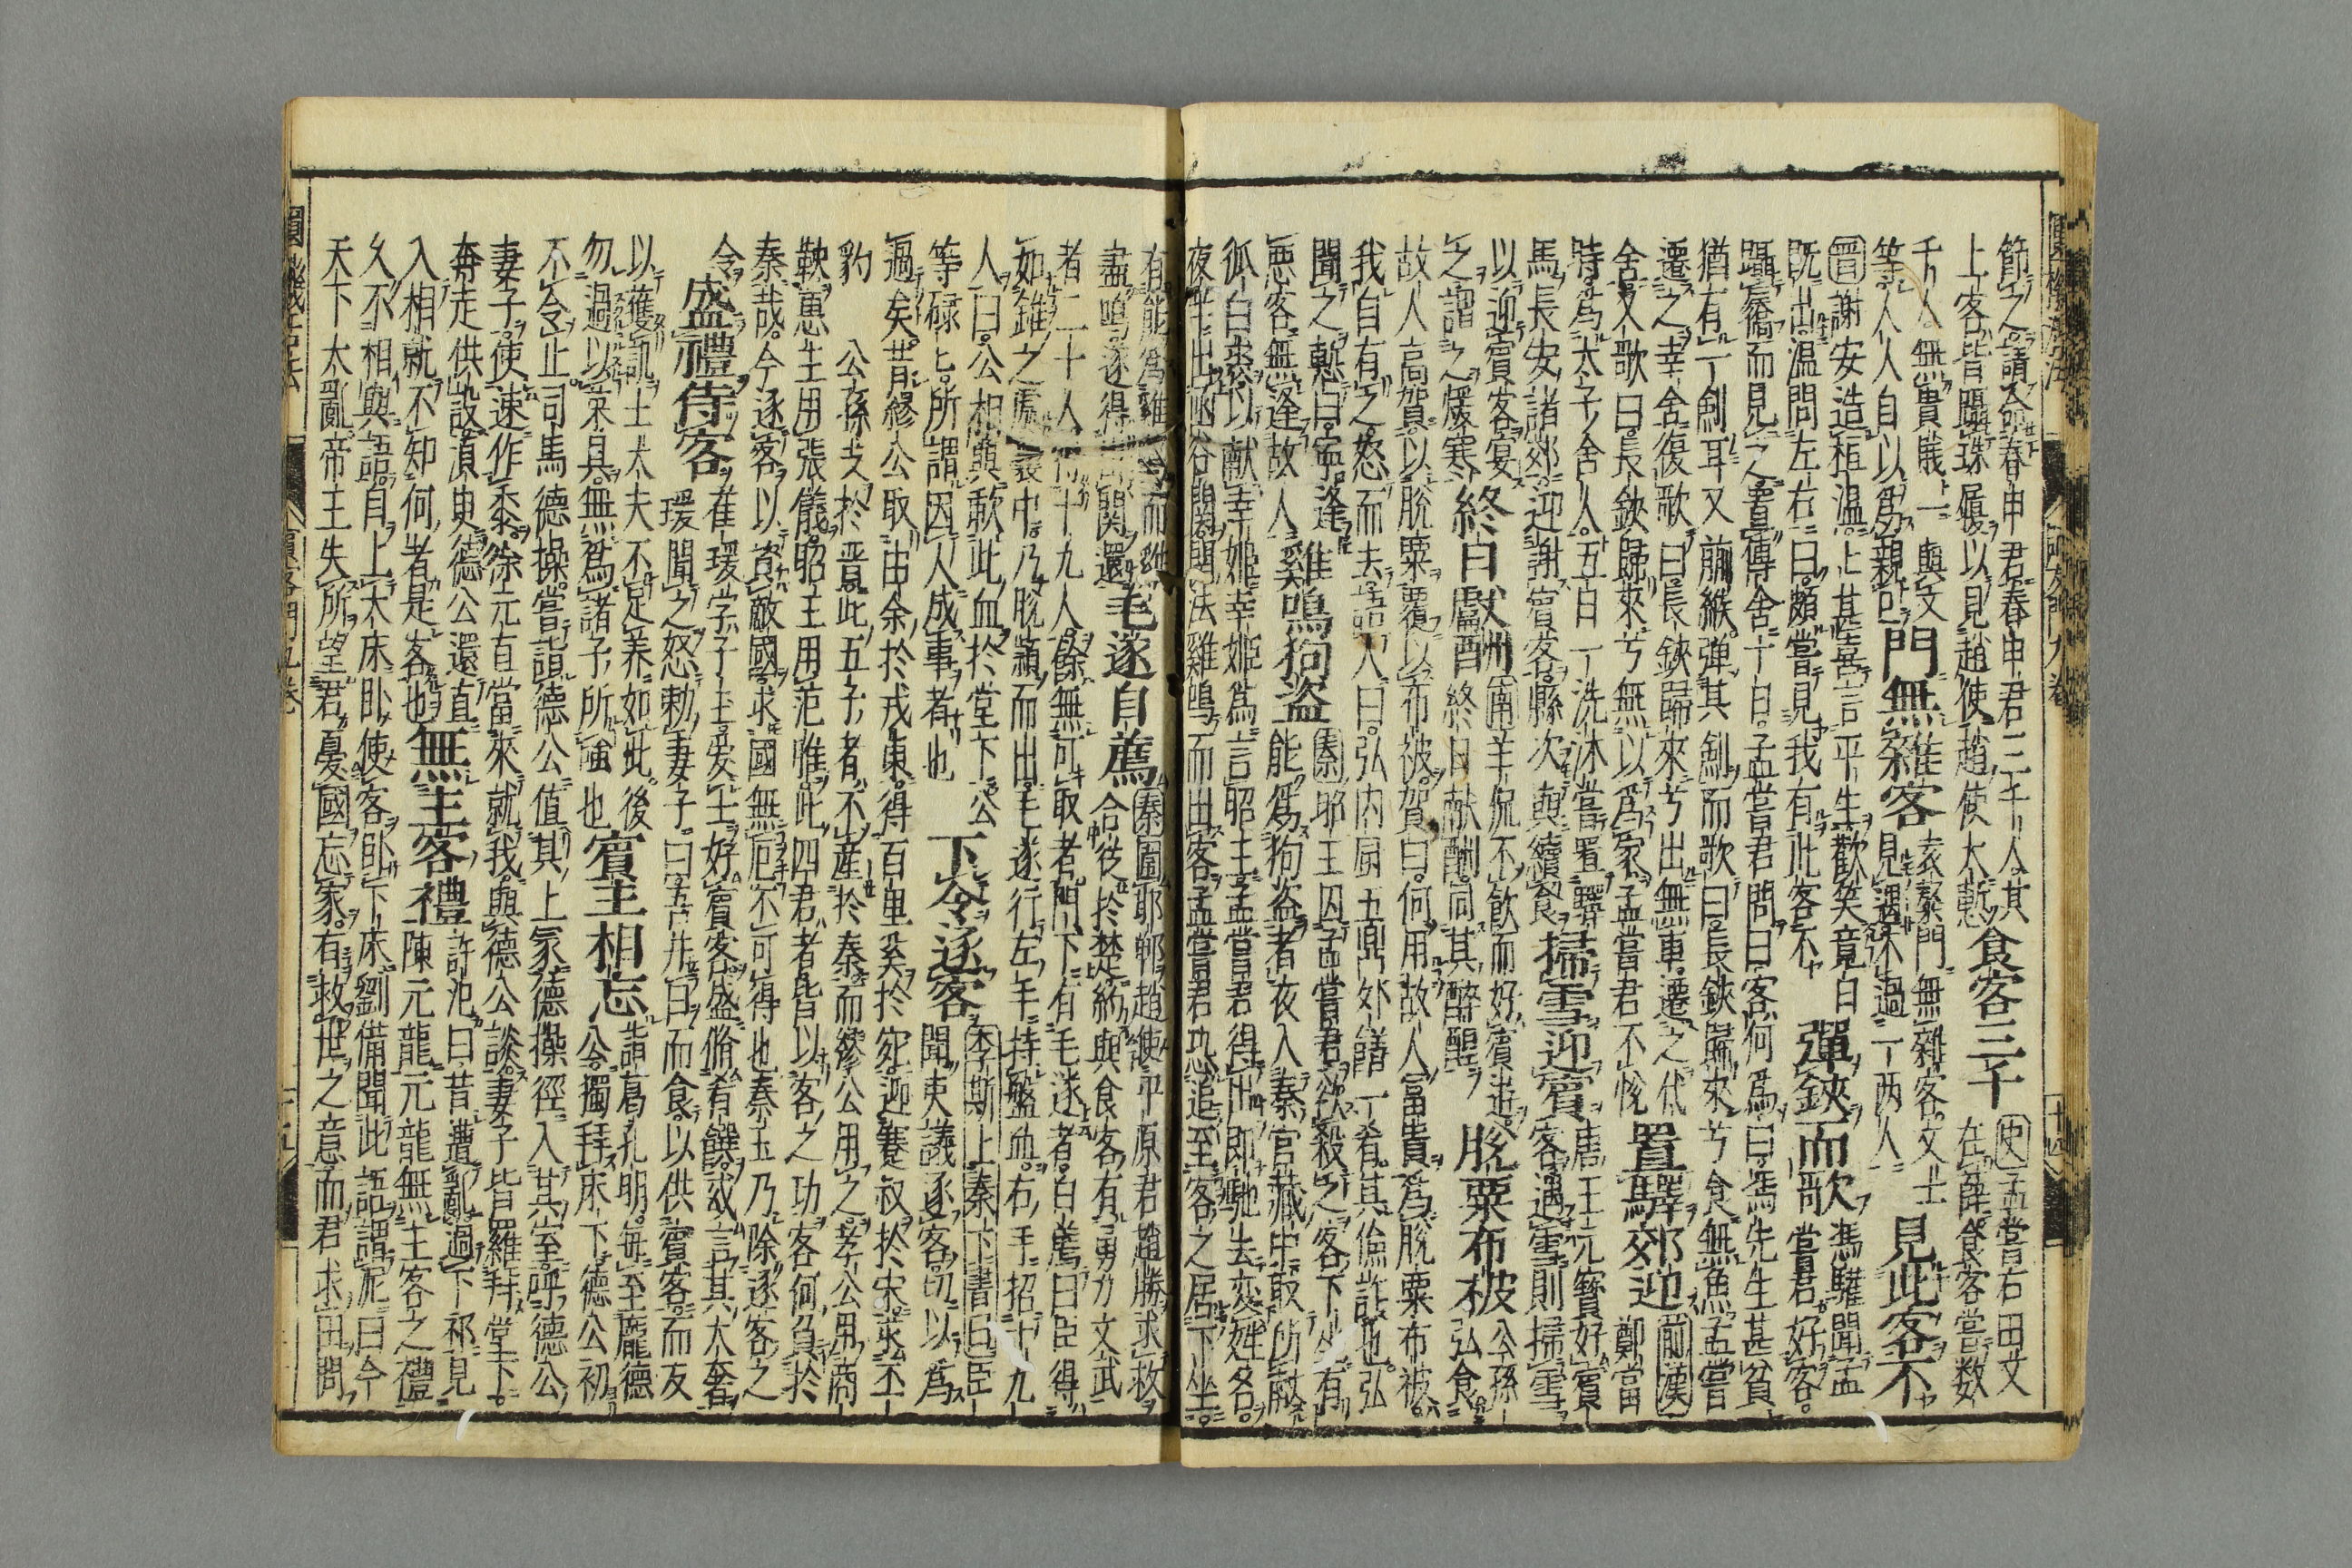 節之請命春申君春申君三千人其食客三千史孟嘗君田文
上客皆躡珠履以見趙使趙使大慙在薛食客嘗数
千人無貴賤一與文門無雜客袁粲門無雜客文士見此客不
等人人自以爲親已見遇不過一两人
晋謝安造桓温上甚喜言平生歡笑竟日彈鋏而歌馮驩聞孟
既出温問左右曰頗嘗見我有此客不嘗君好客
躡屩而見之置傳舍十日孟嘗君問曰客何爲曰馮先生甚貧
猶有一劍耳又蒯緱彈其劍而歌曰長鋏歸來兮食無魚孟嘗
遷之幸舍復歌曰長鋏歸來兮出無車遷之代置驛郊迎前漢
舍又歌曰長鋏歸來兮無以爲家孟嘗君不恱鄭當
時爲太子舍人五日一洗沐嘗置驛掃雪迎賓唐王元寶好賓
馬長安諸郊迎謝賓客縣次與續食客遇雪則掃雪
以迎賓客宴終日獻酬南羊侃不飲而好賓遊脫粟布被公孫
之謂之煖寒終日献酬同其醉醒弘食
故人高賀以脫粟覆以布被賀曰何用故人冨貴爲脫粟布被
我自有之怒而去語人曰弘内厨五鼎外膳一肴其倫詐也弘
聞之慙曰寧逢雞鳴狗盗秦昭王囚孟嘗君欲殺之客下坐有
悪客無逢故人能爲狗盗者夜入秦宫藏中取所獻
狐白裘以献幸姬幸姬爲言昭王孟嘗君得出即馳去変姓名
夜半出函谷關關法雞鳴而出客孟嘗君恐追至客之居下坐
有能爲雞鳴而雞
盡鳴遂得出關還毛遂自薦秦圍邯鄲趙使平原君趙勝求救
合從於楚約與食客有勇力文武
者二十人得十九人餘無可取者門下有毛遂者自薦曰臣得
如錐之處囊中乃脫穎而出毛遂行左手持盤血右手招十九
人曰公相與歃此血於堂下公下令逐客李斯上秦下書曰臣
等碌々所謂因人成事者也聞吏議逐客切以爲
過矣昔繆公取由余於戎東得百里奚於宛迎蹇叔於宋求丕
豹公孫支於晋此五子者不産於秦而繆公用之孝公用商
鞅惠王用張儀昭王用范雎此四君者皆以客之功客何負於
秦哉今逐客以資敵國求國無危不可得也秦王乃除逐客之
令盛禮待客崔瑗字子玉安王好賓客盛脩肴饌或言其太奢
瑗聞之怒勅妻子曰吾并日而食以供賓客而友
以獲訕士大夫不足养如此後賓主相忘諸葛孔明毎至龐德
勿過以菜具無爲諸子所强也公獨拜床下德公初
不令止司馬德操嘗詣德公值其上冢德操徑入其室呼德公
妻子使速作黍徐元直當來就我與德公談妻子皆羅拜堂下
奔走供設湏臾德公還直無主客禮許汜曰昔遭亂過下邳見
入相就不知何者是客也陳元龍元龍無主客之禮
久不相與語自上大床臥使客臥下床劉備聞此語謂汜曰今
天下大亂帝王失所望君憂國忘家有救世之意而君求田問